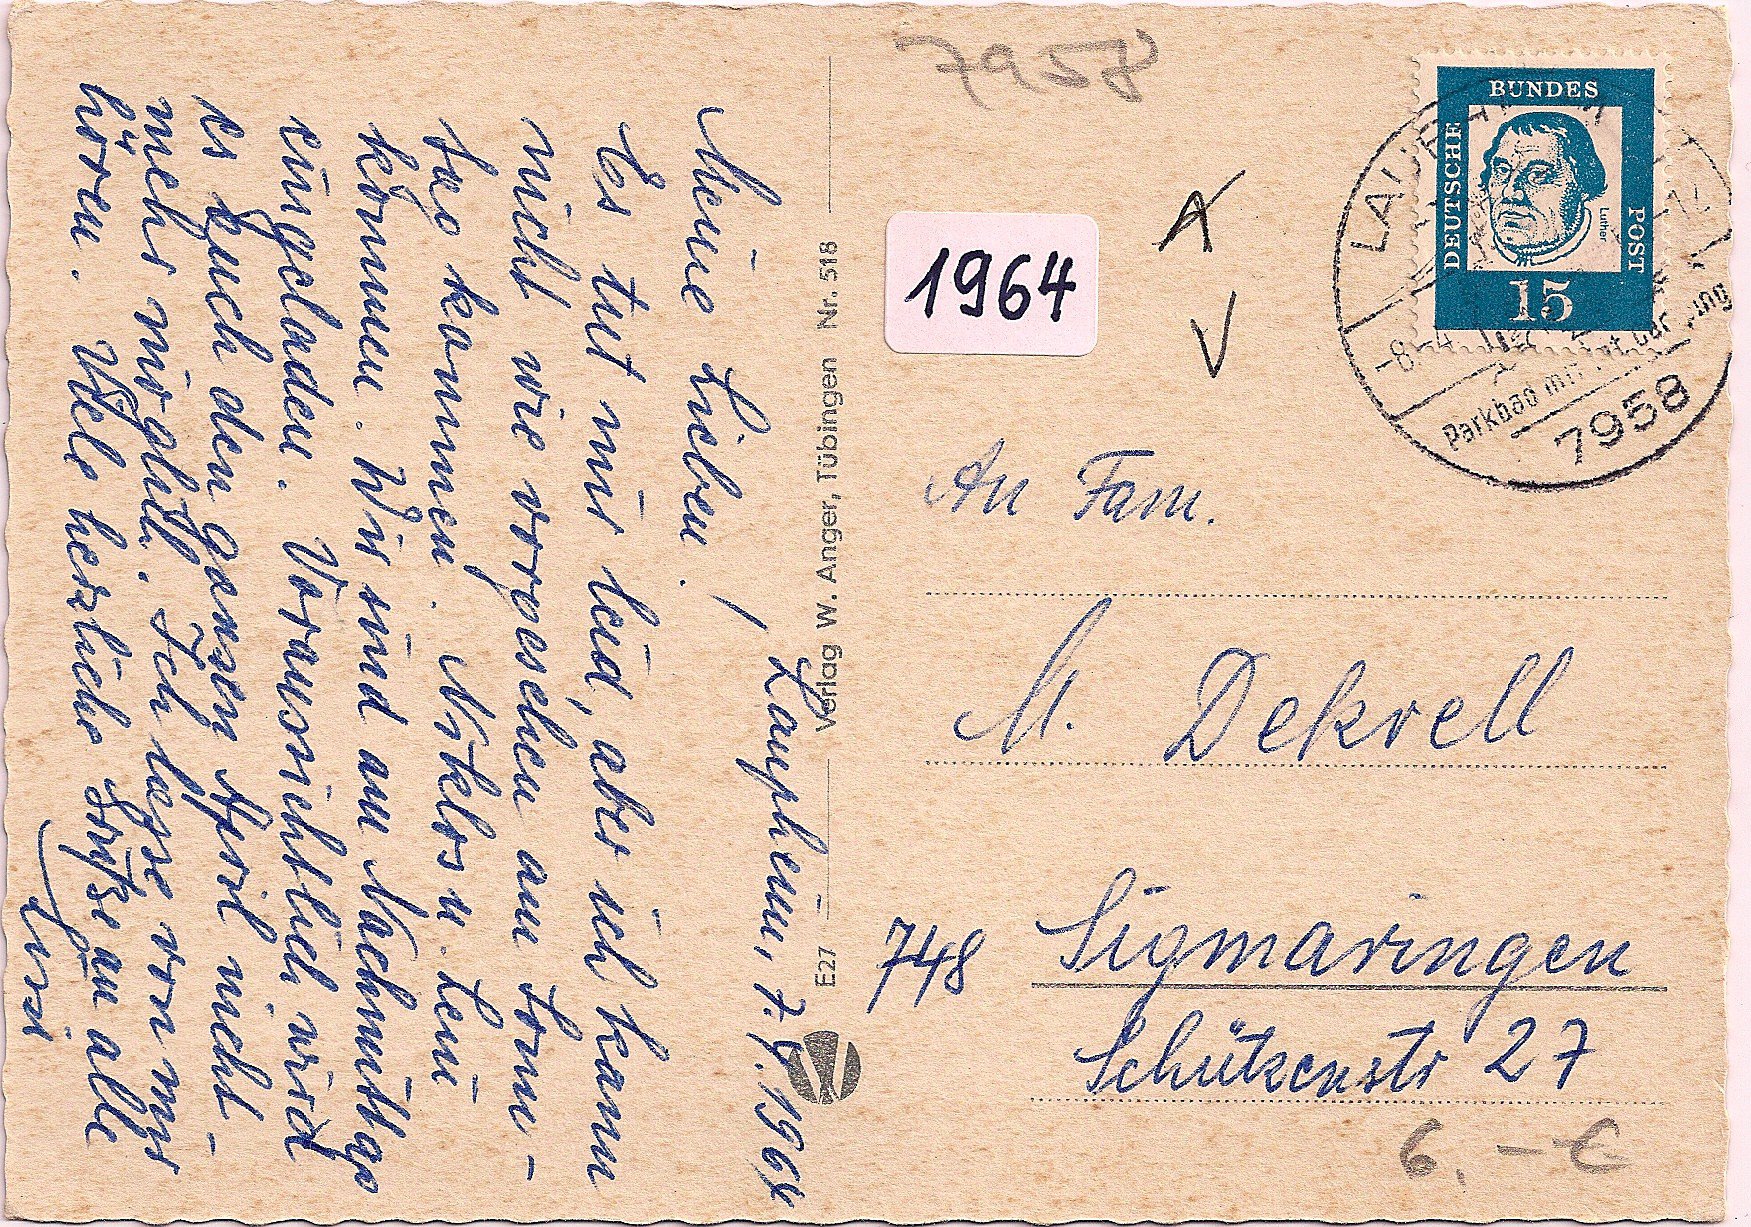 Laupheim, 7.4.1964
Meine Lieben!
Es tut mir leid, aber ich kann
nicht wie vorgesehen am Sonn-
tag kommen. Niklos u. Leni
kommen. Wir sind am Nachmittag
eingeladen. Voraussichtlich wird
es Euch den ganzen April nicht
mehr möglich. Ich lasse von mir
hören. Viele herzliche Grüße an alle
Verlag W. Anger, Tübingen Nr. 518
E27
7958
1964
A
V
DEUTSCHE BUNDESPOST
Luther
15
LAUPHEIM
Parkbad mit
7958
An Fam.
M. Dekrell
748 Sigmaringen
Schützenstr 27
6,-€